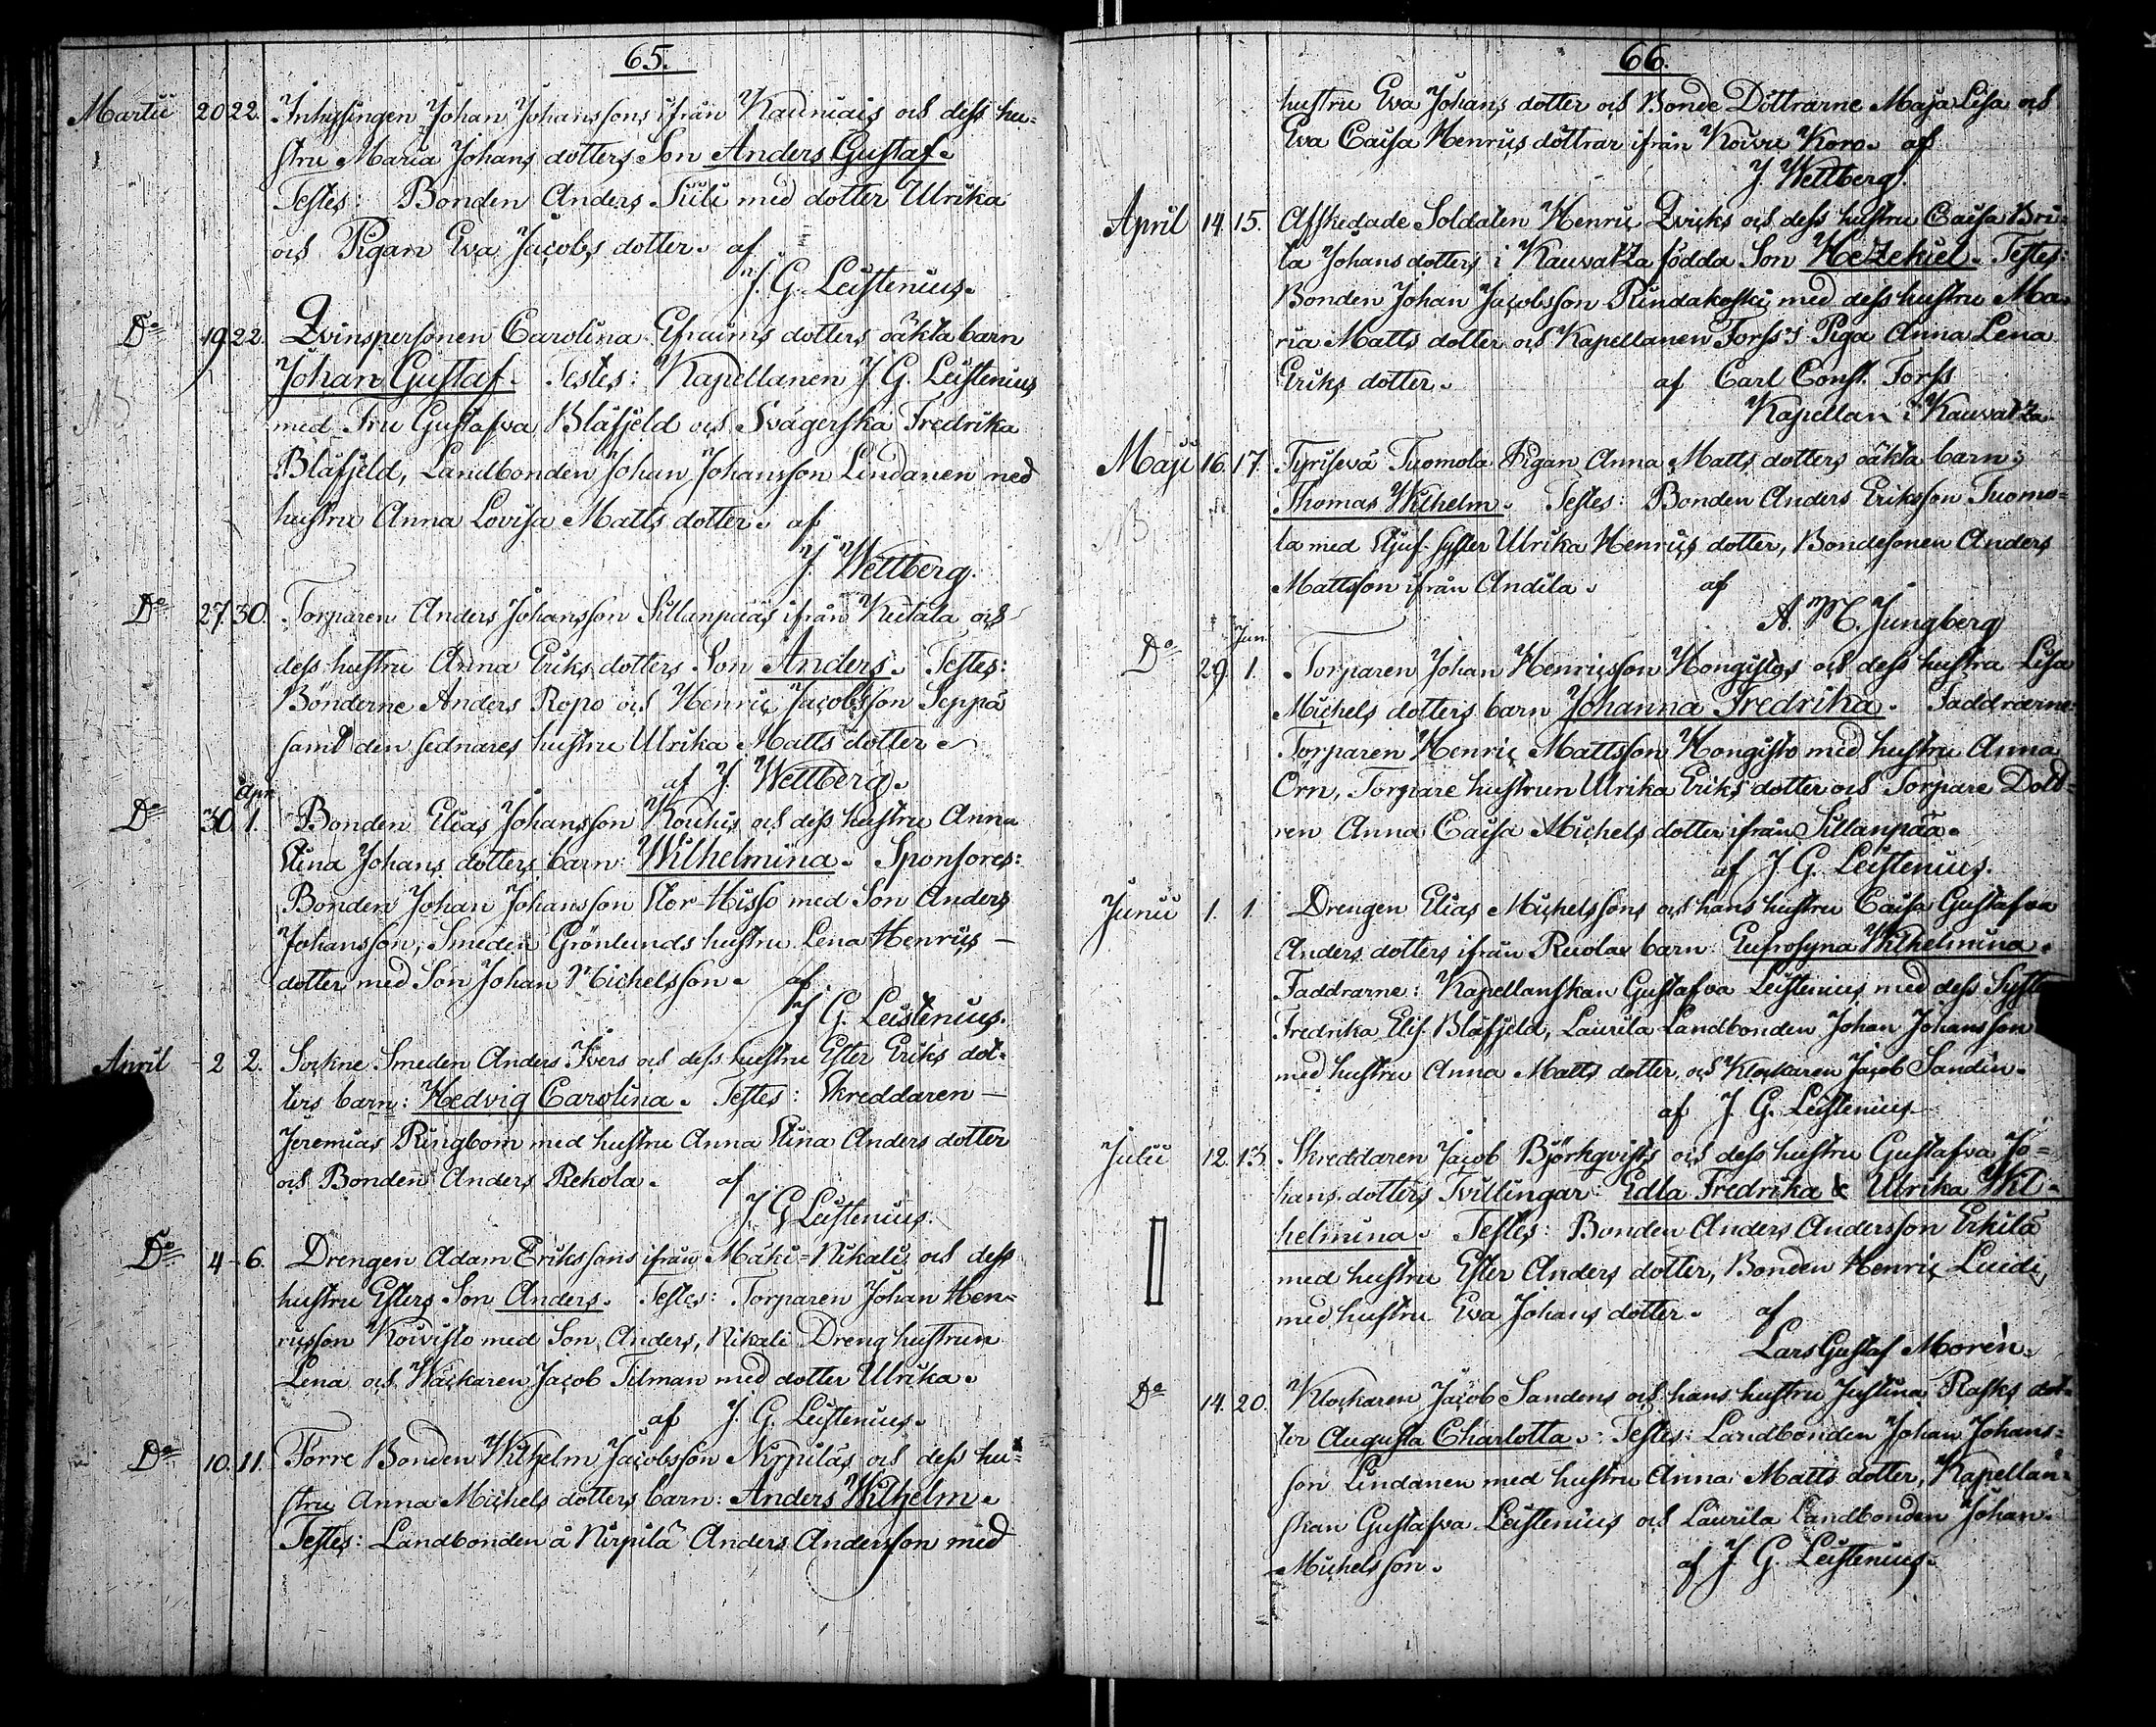 65.
Martii 20 22. Inhysingen Johan Johanssons ifrån Kauniais och dess hu-
stru Maria Johans dotters Son Anders Gustaf.
Testes: Bonden Anders Süli med dotter Ulrika
och Pigan Eva Jacobs dotter. af
J. G. Leistenius.
Do 19 22. Qvinspersonen Carolina Efraims dotters oäkta barn
Johan Gustaf. Testes: Kapellanen J G. Leistenius
med Fru Gustafva Blåfjeld och Svägerska Fredrika
Blåfjeld, Landbonden Johan Johansson Lindanen med
hustru Anna Lovisa Matts dotter. af
J. Wettberg.
Do 27. 30. Torparen Anders Johansson Sillanpääs ifrån Kutala och
dess hustru Anna Eriks dotters Son Anders. Testes:
Bönderne Anders Ropo och Henric Jacobsson Seppä
samt den sednares hustru Ulrika Matts dotter
af J. Wettberg.
Apr.
Do 30. 1. Bonden Elias Johansson Kouhis och dess hustru Anna
Stina Johans dotters barn: Wilhelmina. Sponsores:
Bonden Johan Johansson Stor-Hisso med Son Anders
Johansson, Smeden Grönlunds hustru Lena Henrics-
dotter med Son Johan Michelsson. af
J G. Leistenius.
April 2 2. Sockne Smeden Anders Ivers och dess hustru Ester Eriks dot-
ters barn: Hedvig Carolina. Testes: Skreddaren
Jeremias Ringbom med hustru Anna Stina Anders dotter
och Bonden Anders Rekola. af
J. G Leistenius.
Do 4 - 6. Drengen Adam Erikssons ifrån Mäki=Nikali och dess
hustru Esters Son Anders. Testes: Torparen Johan Hen-
ricsson Koivisto med Son Anders, Nikali Dreng hustrun
Lena och Wäckaren Jacob Tilman med dotter Ulrika.
af J. G. Leistenius.
Do 10. 11. Förre Bonden Wilhelm Jacobsson Nirpiläs och dess hu-
stru Anna Michels dotters barn: Anders Wilhelm.
Testes: Landbonden å Nirpilä Anders Andersson med
66.
hustru Eva Johans dotter och Bonde Döttrarne Maja Lisa och
Eva Caisa Henrics döttrar ifrån Koivu Koro. af
J. Wettberg.
April 14. 15. Afskedade Soldaten Henric Qvicks och dess hustru Caisa Bri-
ta Johans dotters i Kauvatza födda Son Hezekiel. Testes:
Bonden Johan Jacobsson Rindakoski med dess hustru Ma-
ria Matts dotter och Kapellanen Forss's Piga Anna Lena
Eriks dotter. af Carl Const. Forss
Kapellan i Kauvatza.
Maji 16. 17. Tyrisevä Tuomola Pigan Anna Matts dotters oäkta barn:
Thomas Wilhelm. Testes: Bonden Anders Eriksson Tuomo-
la med Stjuf-syster Ulrika Henrics dotter, Bondesonen Anders
Mattsson ifrån Andila. af
A. M. Jungberg
Jun.
Do 29. 1. Torparen Johan Henricsson Hongistos och dess hustru Lisa
Michels dotters barn Johanna Fredrika. Faddrarne:
Torparen Henric Mattsson Hongisto med hustru Anna
Örn, Torpare hustrun Ulrika Eriks dotter och Torpare Dott-
ren Anna Caisa Michels dotter ifrån Sillanpää.
af J. G. Leistenius.
Junii 1. 1. Drengen Elias Michelssons och hans hustru Caisa Gustafva
Anders dotters ifrån Ruola barn: Eufrosyna Wilhelmina.
Faddrarne: Kapellanskan Gustafva Leistenius med dess Syste
Fredrika Elis. Blåfjeld, Laurila Landbonden Johan Johansson
med hustru Anna Matts dotter, och Klockaren Jacob Sandén.
af J. G. Leistenius.
Julii 12. 13. Skreddaren Jacob Björkqvists och dess hustru Gustafva Jo-
hans dotters Tvillingar: Edla Fredrika & Ulrika Wil-
helmina. Testes: Bonden Anders Andersson Erkilä
med hustru Ester Anders dotter, Bonden Henric Luidi
med hustru Eva Johans dotter. af
Lars Gustaf Morén.
Do 14. 20. Klockaren Jacob Sandens och hans hustru Justina Rasks dot-
ter Augusta Charlotta. Testes: Landbonden Johan Johans-
son Lindanen med hustru Anna Matts dotter, Kapellan-
skan Gustafva Leistenius och Laurila Landbonden Johan
Michelsson. af J G. Leistenius.